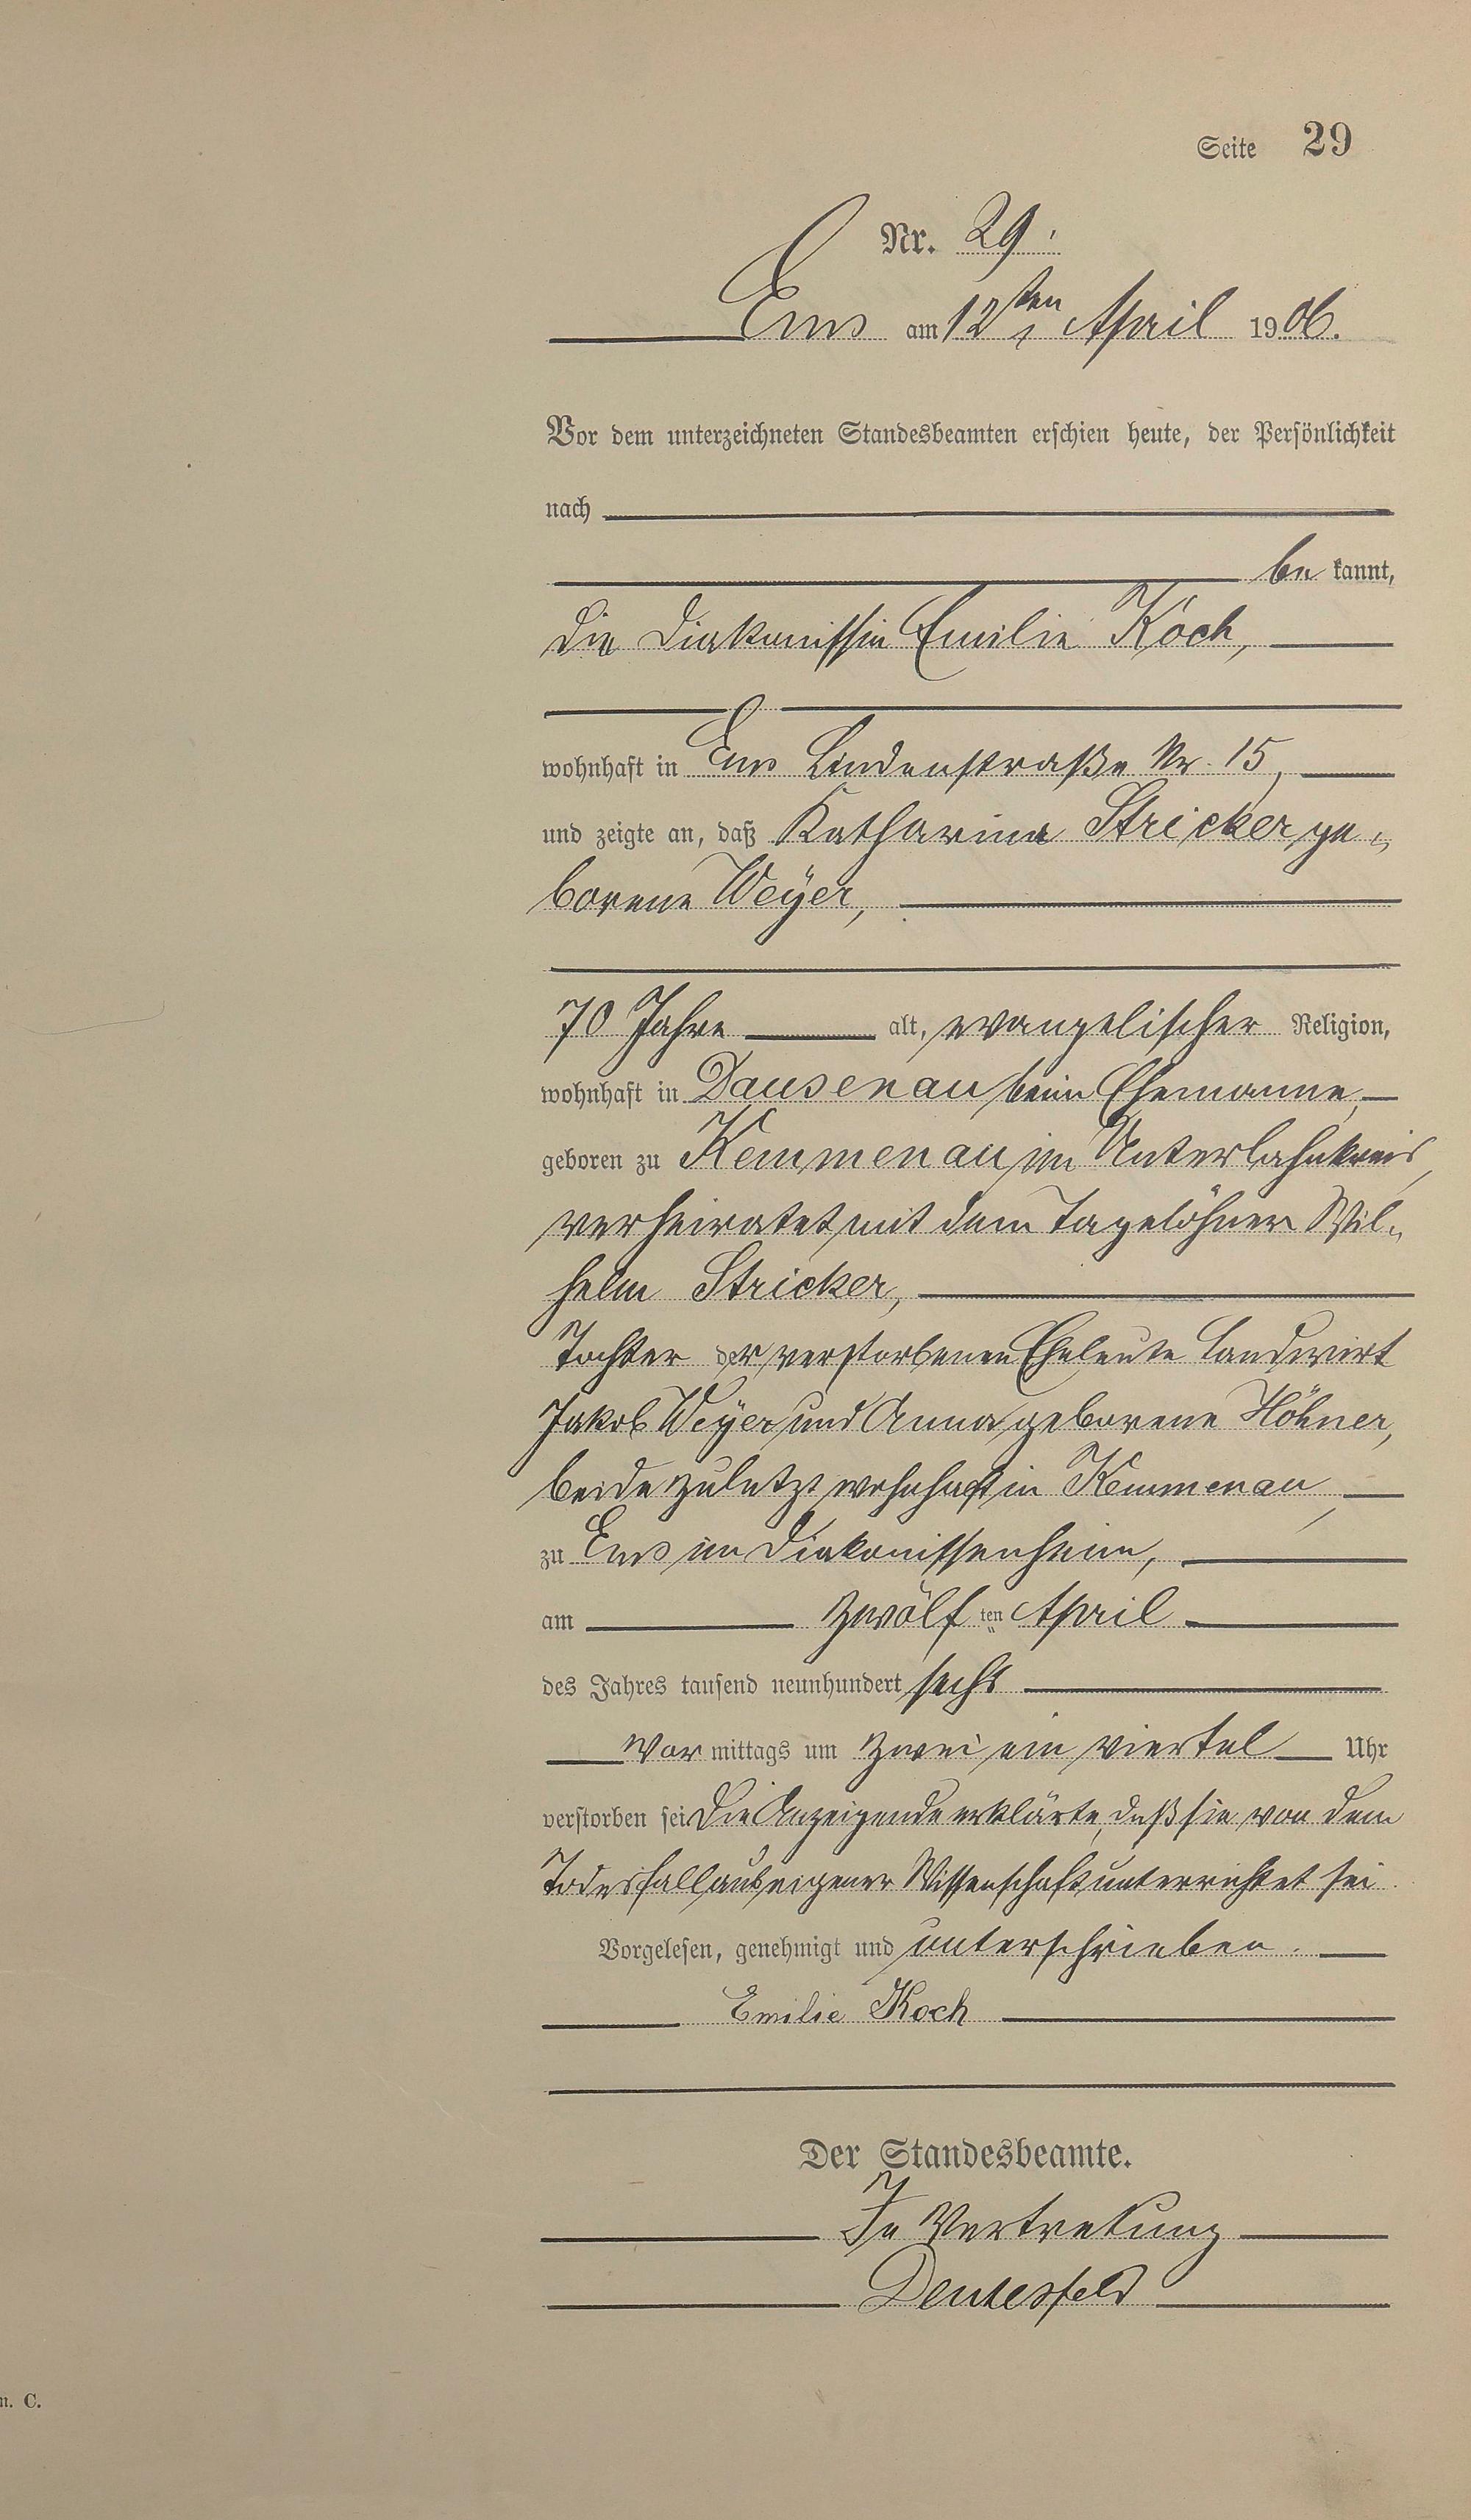 Seite 29
Nr. 29.
Ems am 12ten April 1906.
Vor dem unterzeichneten Standesbeamten erschien heute, der Persönlichkeit
nach
be kannt,
die Diakonissin Emilie Koch,
wohnhaft in Ems Lindenstraße Nr. 15,
und zeigte an, daß Katharina Stricker ge„
borene Weyer,
70 Jahre alt, evangelischer Religion,
wohnhaft in Dausenau beim Ehemanne,
geboren zu Kemmenau im Unterlahnkreis,
verheiratet mit dem Tagelöhner Wil„
helm Stricker,
Tochter der verstorbenen Eheleute Landwirt
Jakob Weyer und Anna geborene Höhner,
beide zuletzt wohnhaft in Kemmenau,
zu Ems im Diakonissenheim,
am zwölf ten April
des Jahres tausend neunhundert sechs
Vor mittags um zwei ein viertel Uhr
verstorben sei Die Anzeigende erklärte, daß sie von dem
Todesfall aus eigener Wissenschaft unterrichtet sei.
Vorgelesen, genehmigt und unterschrieben.
Emilie Koch
Der Standesbeamte.
In Vertretung
n. C.